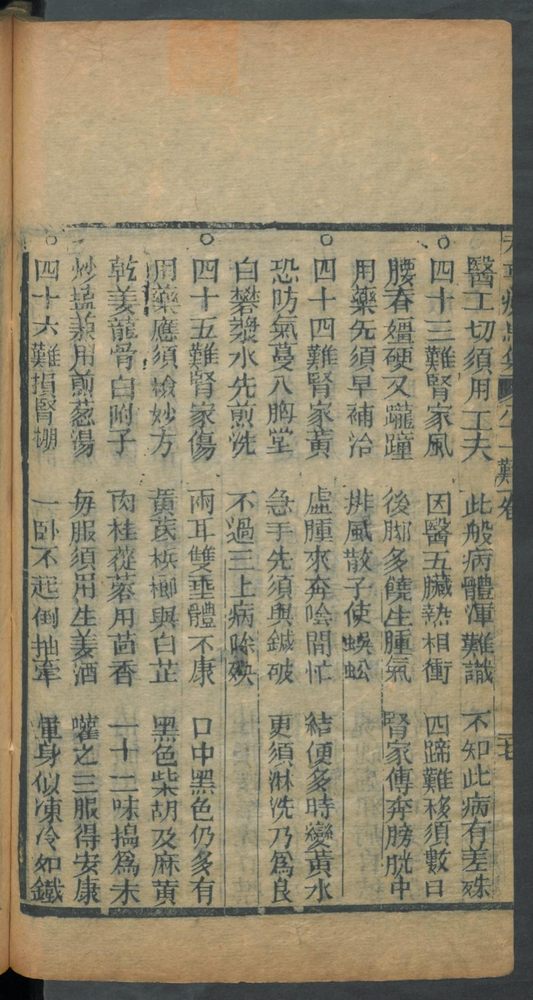 醫工切須用工夫　此般病體渾難識　不知此病有差殊
○四十三難腎家風　因醫五臟熱相衝　四蹄難移須數日
腰脊殭硬又𨇽蹱　後脚多饒生腫氣　腎家傳奔膀胱中
用藥先須早補治　排風散子使蜈蚣
○四十四難腎家黃　虛腫來奔陰間忙　結便多時變黃水
恐防氣蔓入胸堂　急手先須與鍼破　更須淋洗乃爲良
白礬漿水先煎洗　不過三上病除殃
○四十五難腎家傷　兩耳雙垂體不康　口中黑色仍多有
用藥應須檢妙方　黃芪梹榔與白芷　黑色柴胡及麻黃
乾姜龍骨白附子　肉桂蓯蓉用茴香　一十二味搗爲末
炒鹽兼用煎葱湯　每服須用生姜酒　嚾之三服得安康
○四十六難損腎棚　一卧不起倒抽牽　渾身似凍冷如鐵